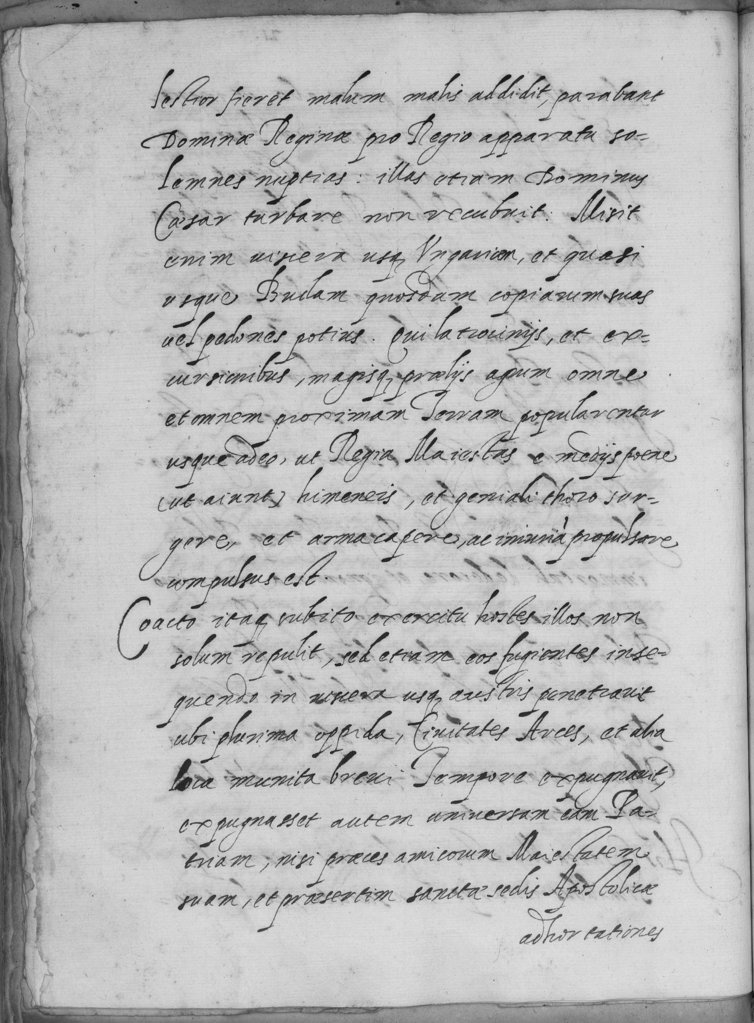 lestior fieret malum malis addidit, parabant
Dominæ Reginæ pro Regio apparatu so-
lemnes nuptias: illas etiam Dominus
Cæsar turbare non recubuit: Misit
enim viscera usq Ungariam, et quasi
usque Budam quosdam copiarum suas
vel pedones potius. Qui latrocinijs, et ex-
cursionibus, magisq prælijs agrum omne
et omnem proximam Terram popularentur
usque adeo, ut Regia Maiestas e medijs poene
(ut aiunt) himeneis, et geniali thoro sur-
gere, et arma capere, ac iniuriâ propulsare
compulsus est
Coacto itaq subito exercitu hostes illos non
solum repulit, sed etiam eos fugientes inse-
quendo in viscera usq austris penetravit
ubi plurima oppida, Civitates Arces, et alia
loca munita brevi Tempore expugnavit,
expugnasset autem universam eam Pa-
triam, nisi præces amicorum Maiestatem
suam, et præsertim sanctæ sedis Apostolicæ
adhortationes